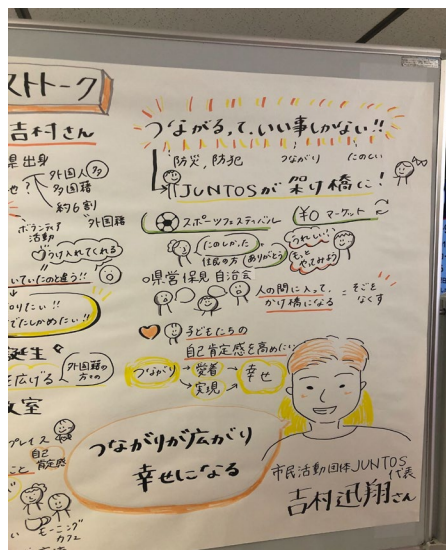 ストトーク
吉村さん
県出身
外国人 多
多国籍
約6割
外国籍
ボランティア
活動
うけ入れてくれる
いていたのと違う!!
りたい!!
でたしかめたい!!
誕生
を広げる
外国籍の
方々の
教室
プレイス
自己
肯定感
こと
モーニング
カフェ
つながる、て、いい事しかない!!
防災、防犯 つながり たのしい
JUNTOSが架け橋に!
スポーツフェスティバル ¥0 マーケット
たのしかった
住民の方 ありがとう
うれしい!!
もっと
やってみよう
県営保見自治会
人の間に入って、
かけ橋になる = みぞを
なくす
子どもたちの
自己肯定感を高めたい
つながり → 愛着
→ 実現 → 幸せ
つながりが広がり
幸せになる
市民活動団体JUNTOS
代表
吉村迅翔さん